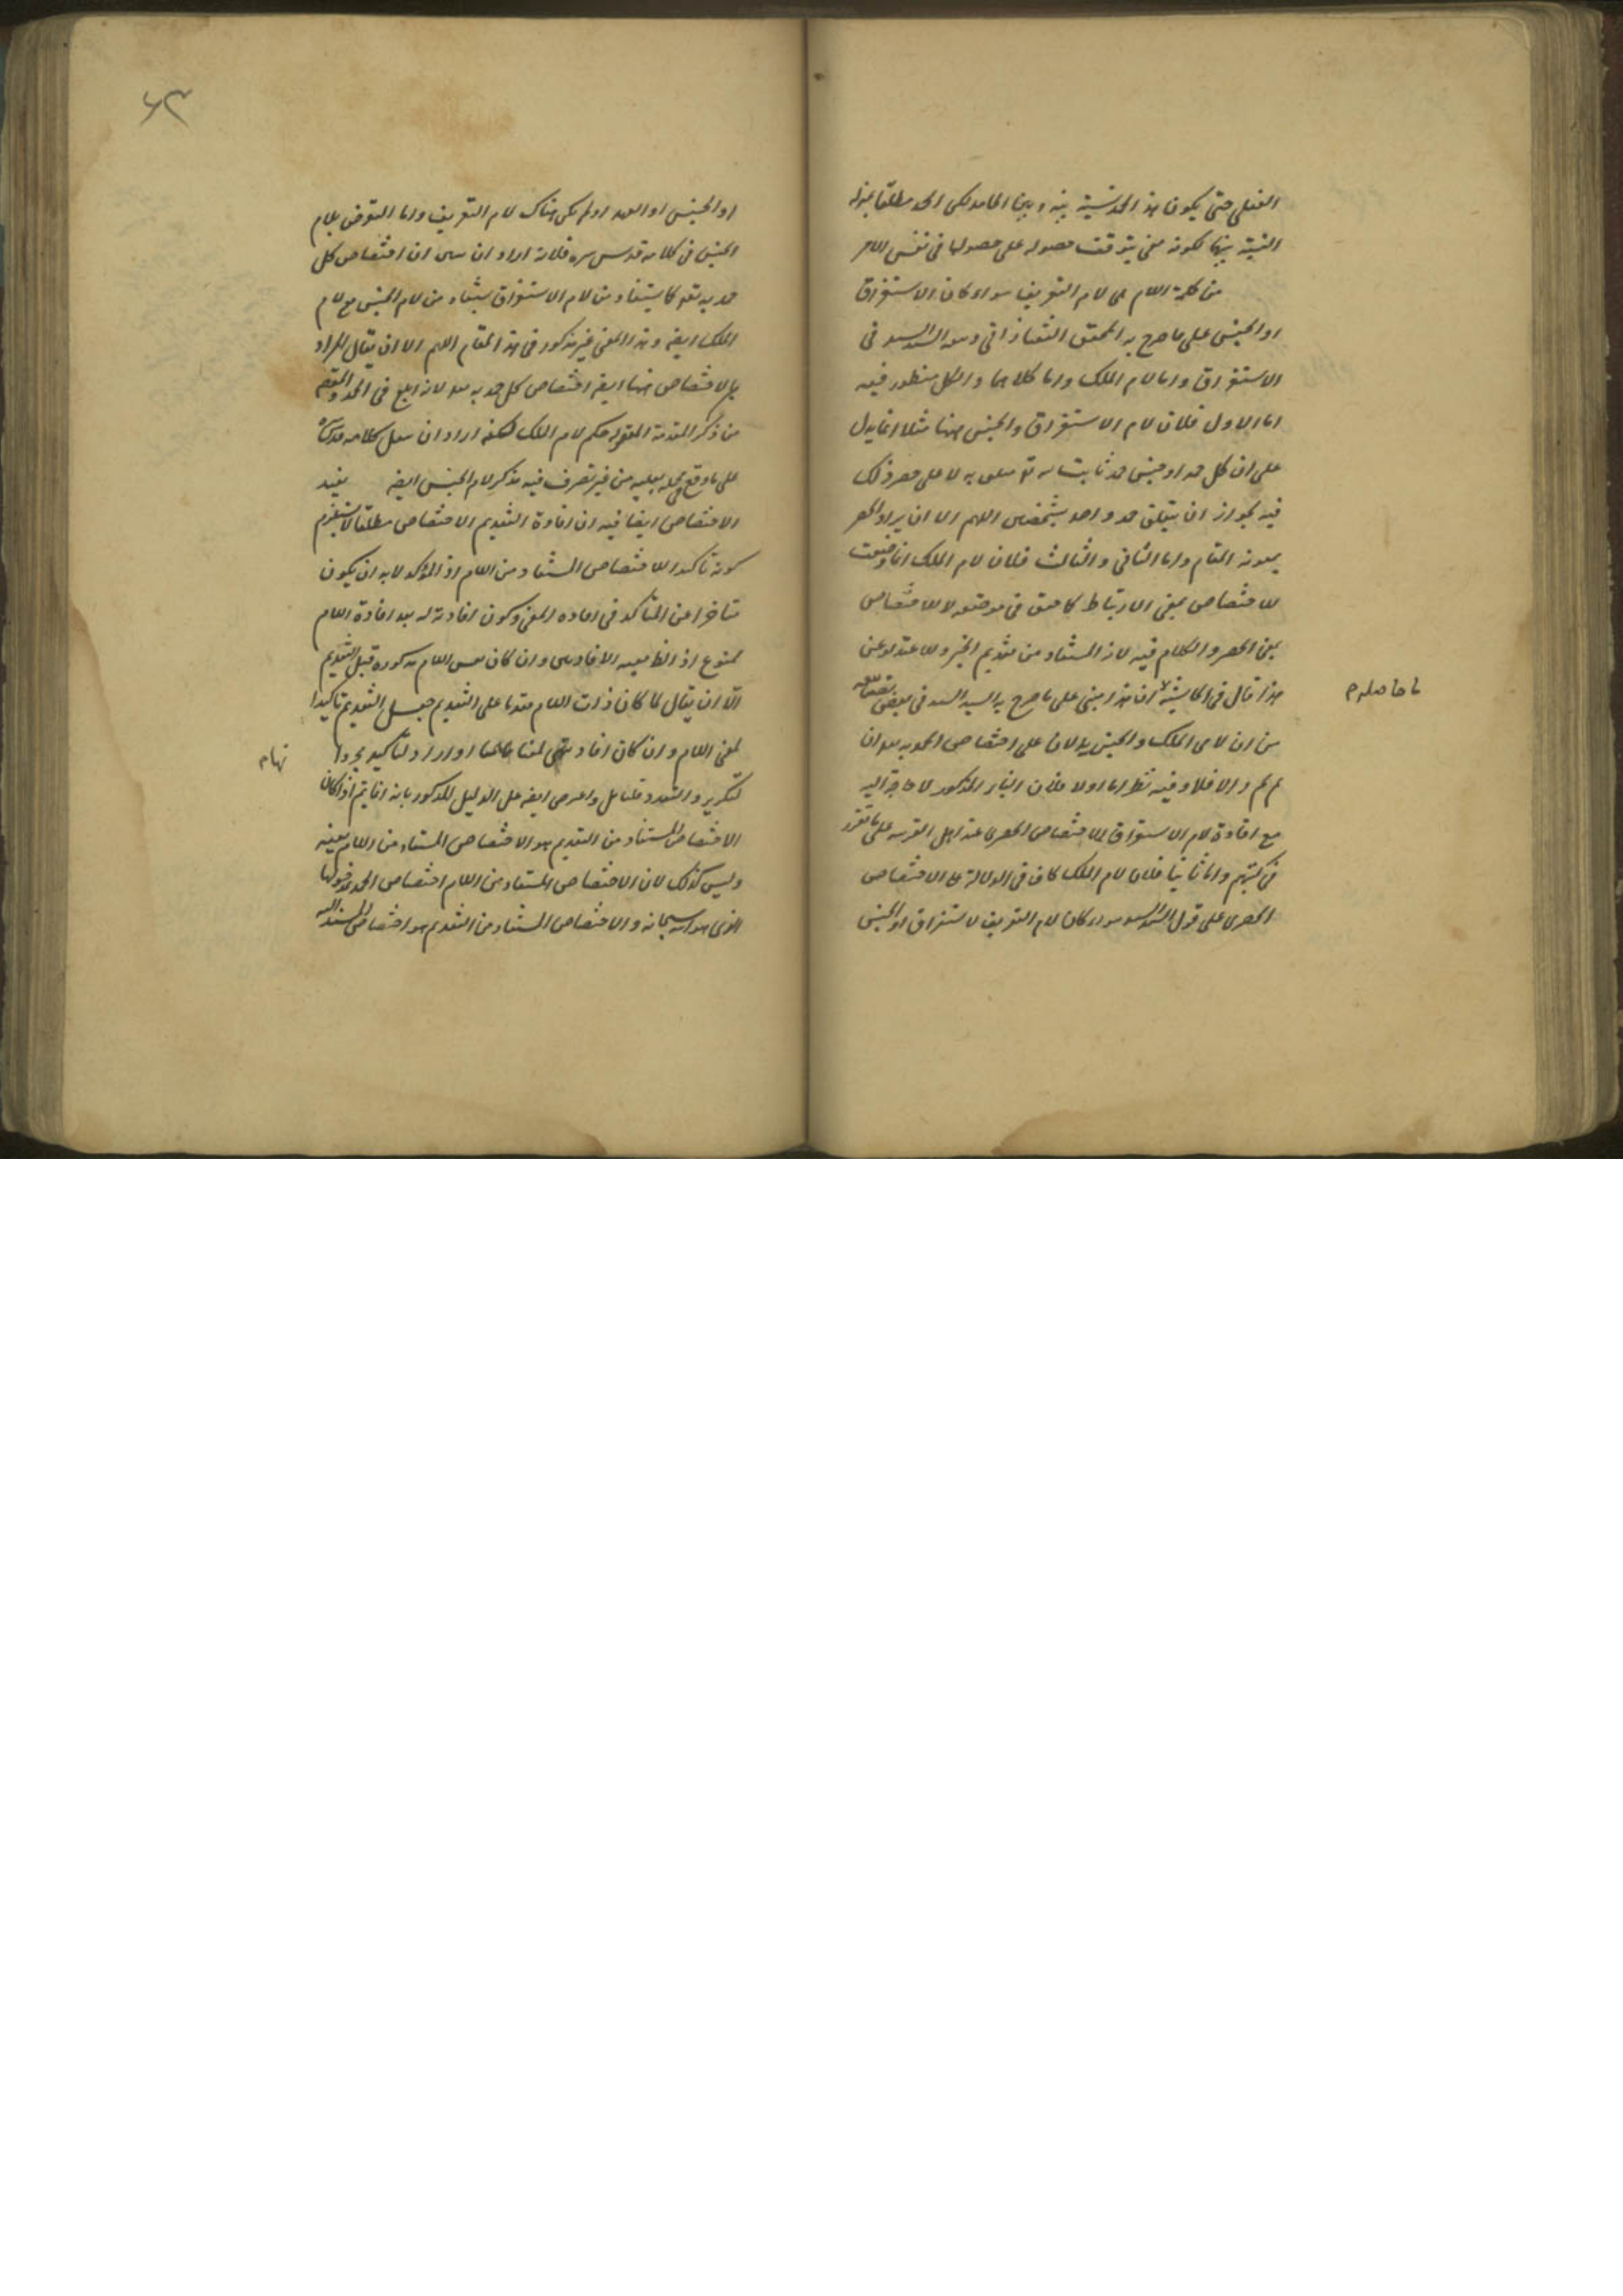 الفعلى حتى يكون هذا الحمد نسبة بينه وبين الحامد لكن الحمد مطلقا بهذا
النسبة بينهما لكونه معنى يتوقف حصوله على حصولها فى نفس الامر
من كلمة اللام اى لام التعريف سواء كان الاستغراق
او الجنس على ما صرح به المحقق التفتازانى و السيد السند فى
الاستغراق واما لام الملك واما كلاهما والكل منظور فيه
اما الاول فلان لام الاستغراق والجنس ههنا مثلا انما يدل
على ان كل حمد او جنس حمد ثابت له تع لا على حصر ذلك
فيه لجواز ان يتعلق حمد واحد بشخصين اللهم الا ان يراد الحصر
بمعونة المقام واما الثانى والثالث فلان لام الملك انما وضعت
للاختصاص بمعنى الارتباط كما حقق فى موضعه لا للاختصاص
بمعنى الحصر والكلام فيه لانه المستفاد من تقديم الخبر
هذا قال فى الحاشية ان هذا مبنى على ما صرح به السيد السند فى بعض تصانيفه
ما حاصله م
من ان لامى الملك والجنس يدلان على اختصاص الحمد به
والا فلا وفيه نظر اما اولا فلان البناء المذكور لا حاجة اليه
مع افادة لام الاستغراق للاختصاص الحصرى عند اهل العربية على ما تقرر
فى كتبهم واما ثانيا فلان لام الملك كاف فى الدلالة على الاختصاص
الحصرى على قول السيد السند سواء كان لام التعريف لاستغراق او الجنس
٦٣
او الجنس او العهد او لم يكن هناك لام التعريف واما التعرض بلام
الجنس فى كلامه قدس سره فلانه اراد ان ان اختصاص كل
حمد به تع كما يستفاد من لام الاستغراق يستفاد من لام الجنس مع لام
الملك ايضا وهذا المعنى غير مذكور فى هذا المقام اللهم الا ان يقال المراد
بالاختصاص ههنا ايضا اختصاص كل حمد به لانه ابلغ فى الحمد والمقصود
من ذكر المقدمة المقولة حكم لام الملك لكنه اراد ان كلامه قدس سره
على ما وقع من غير تصرف فيه بذكر لام الجنس ايضا يفيد
الاختصاص ايضا فيه ان افادة التقديم الاختصاص مطلقا لا يستلزم
كونه تأكيدا للاختصاص المستفاد من اللام اذ المؤكد لا بد ان يكون
متاخرا عن المتأكد فى افادة المعنى وكون افادته له بعد افادة اللام
ممنوع اذ وان كان اللام مذكورة قبل التقديم
الا ان يقال لما كان ذات اللام مقدما على التقديم جعل التقديم تأكيدا
لمعنى اللام وان كان افادتهما لمعناهما معا او اراد بالتأكيد مجرد
تهام
التكرير والتعدد فتامل واعترض ايضا على الدليل المذكور بانه انما يتم اذا كان
الاختصاص المستفاد من التقديم هو الاختصاص المستفاد من اللام بعينه
وليس كذلك لان الاختصاص المستفاد من اللام اختصاص الحمد بمدخولها
الذى هو الله سبحانه والاختصاص المستفاد من التقديم هو اختصاص المسند اليه